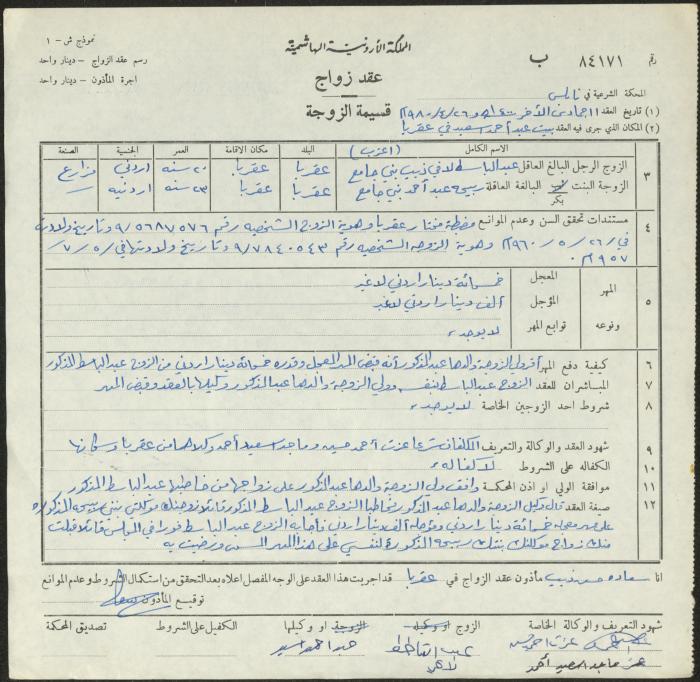 نموذج ش - ١
رسم عقد الزواج - دينار واحد
اجرة المأذون - دينار واحد
المملكة الأردنية الهاشمية
عقد زواج
قسيمة الزوجة
رقم ٨٤١٧١ ب
المحكمة الشرعية في نابلس
(١) تاريخ العقد ١١ جمادى الآخر
(٢) المكان الذي جرى فيه العقد بيت عبد أحمد سعيد في عقربا
الاسم الكامل (اعزب) البلد مكان الاقامة العمر الجنسية الصنعة
٣ الزوج الرجل البالغ العاقل عبد الباسط لافي ذيب بني جامع عقربا عقربا ٢٠ سنه اردني مزارع
الزوجة البنت بكر البالغة العاقلة ربيحه عبد أحمد بني جامع عقربا عقربا ٢٣ سنه اردنيه
٤ مستندات تحقق السن وعدم الموانع مضبطة مختار عقربا وهوية الزوج الشخصيه رقم ٩/٥٦٨٧٥٧٦ وتاريخ ولادته
في ٢٦/٥/١٩٦٠م وهوية الزوجه الشخصيه رقم ٩/٧٨٤٠٥٤٣ وتاريخ ولادتها في ٧/٥/
١٩٥٧م
٥ المهر المعجل خمسمائة دينار اردني لا غير
المؤجل ألف دينار اردني لا غير
ونوعه توابع المهر لا يوجد
٦ كيفية دفع المهر أقر ولي الزوجة والدها عبد المذكور أنه قبض المهر المعجل وقدره خمسمائة دينار اردني من الزوج عبد الباسط المذكور
٧ المباشران للعقد الزوج عبد الباسط بنفسه وولي الزوجة والدها عبد المذكور وكيلها بالعقد وقبض المهر
٨ شروط احد الزوجين الخاصة لا يوجد
٩ شهود العقد والوكالة والتعريف المكلفان شرعا عزت أحمد حسين وماجد سعيد أحمد وكلاهما من عقربا وسكانها
١٠ الكفاله على الشروط لا كفاله
١١ موافقة الولي او اذن المحكمة وافق ولي الزوجة والدها عبد المذكور على زواجها من خاطبها عبد الباسط المذكور
١٢ صيغة العقد قال وكيل الزوجة والدها عبد المذكور مخاطبا الزوج عبد الباسط المذكور قائلا زوجتك موكلتي بنتي ربيحه المذكورة
على مهر معجله خمسمائة دينار اردني ومؤجله ألف دينار اردني فأجابه الزوج عبد الباسط فورا في المجلس قائلا قبلت
منك زواج موكلتك بنتك ربيحه المذكورة لنفسي على هذا المهر المسمى ورضيت به
انا سعاده حسن ذيب مأذون عقد الزواج في عقربا قد اجريت هذا العقد على الوجه المفصل اعلاه بعد التحقق من استكمال الشروط وعدم الموانع
توقيع المأذون
شهود التعريف والوكالة الخاصة الزوج او وكيله الزوجة او وكيلها الكفيل على الشروط تصديق المحكمة
عزت أحمد حسين عبد الباسط عبد احمد سعيد
ماجد سعيد أحمد لافي